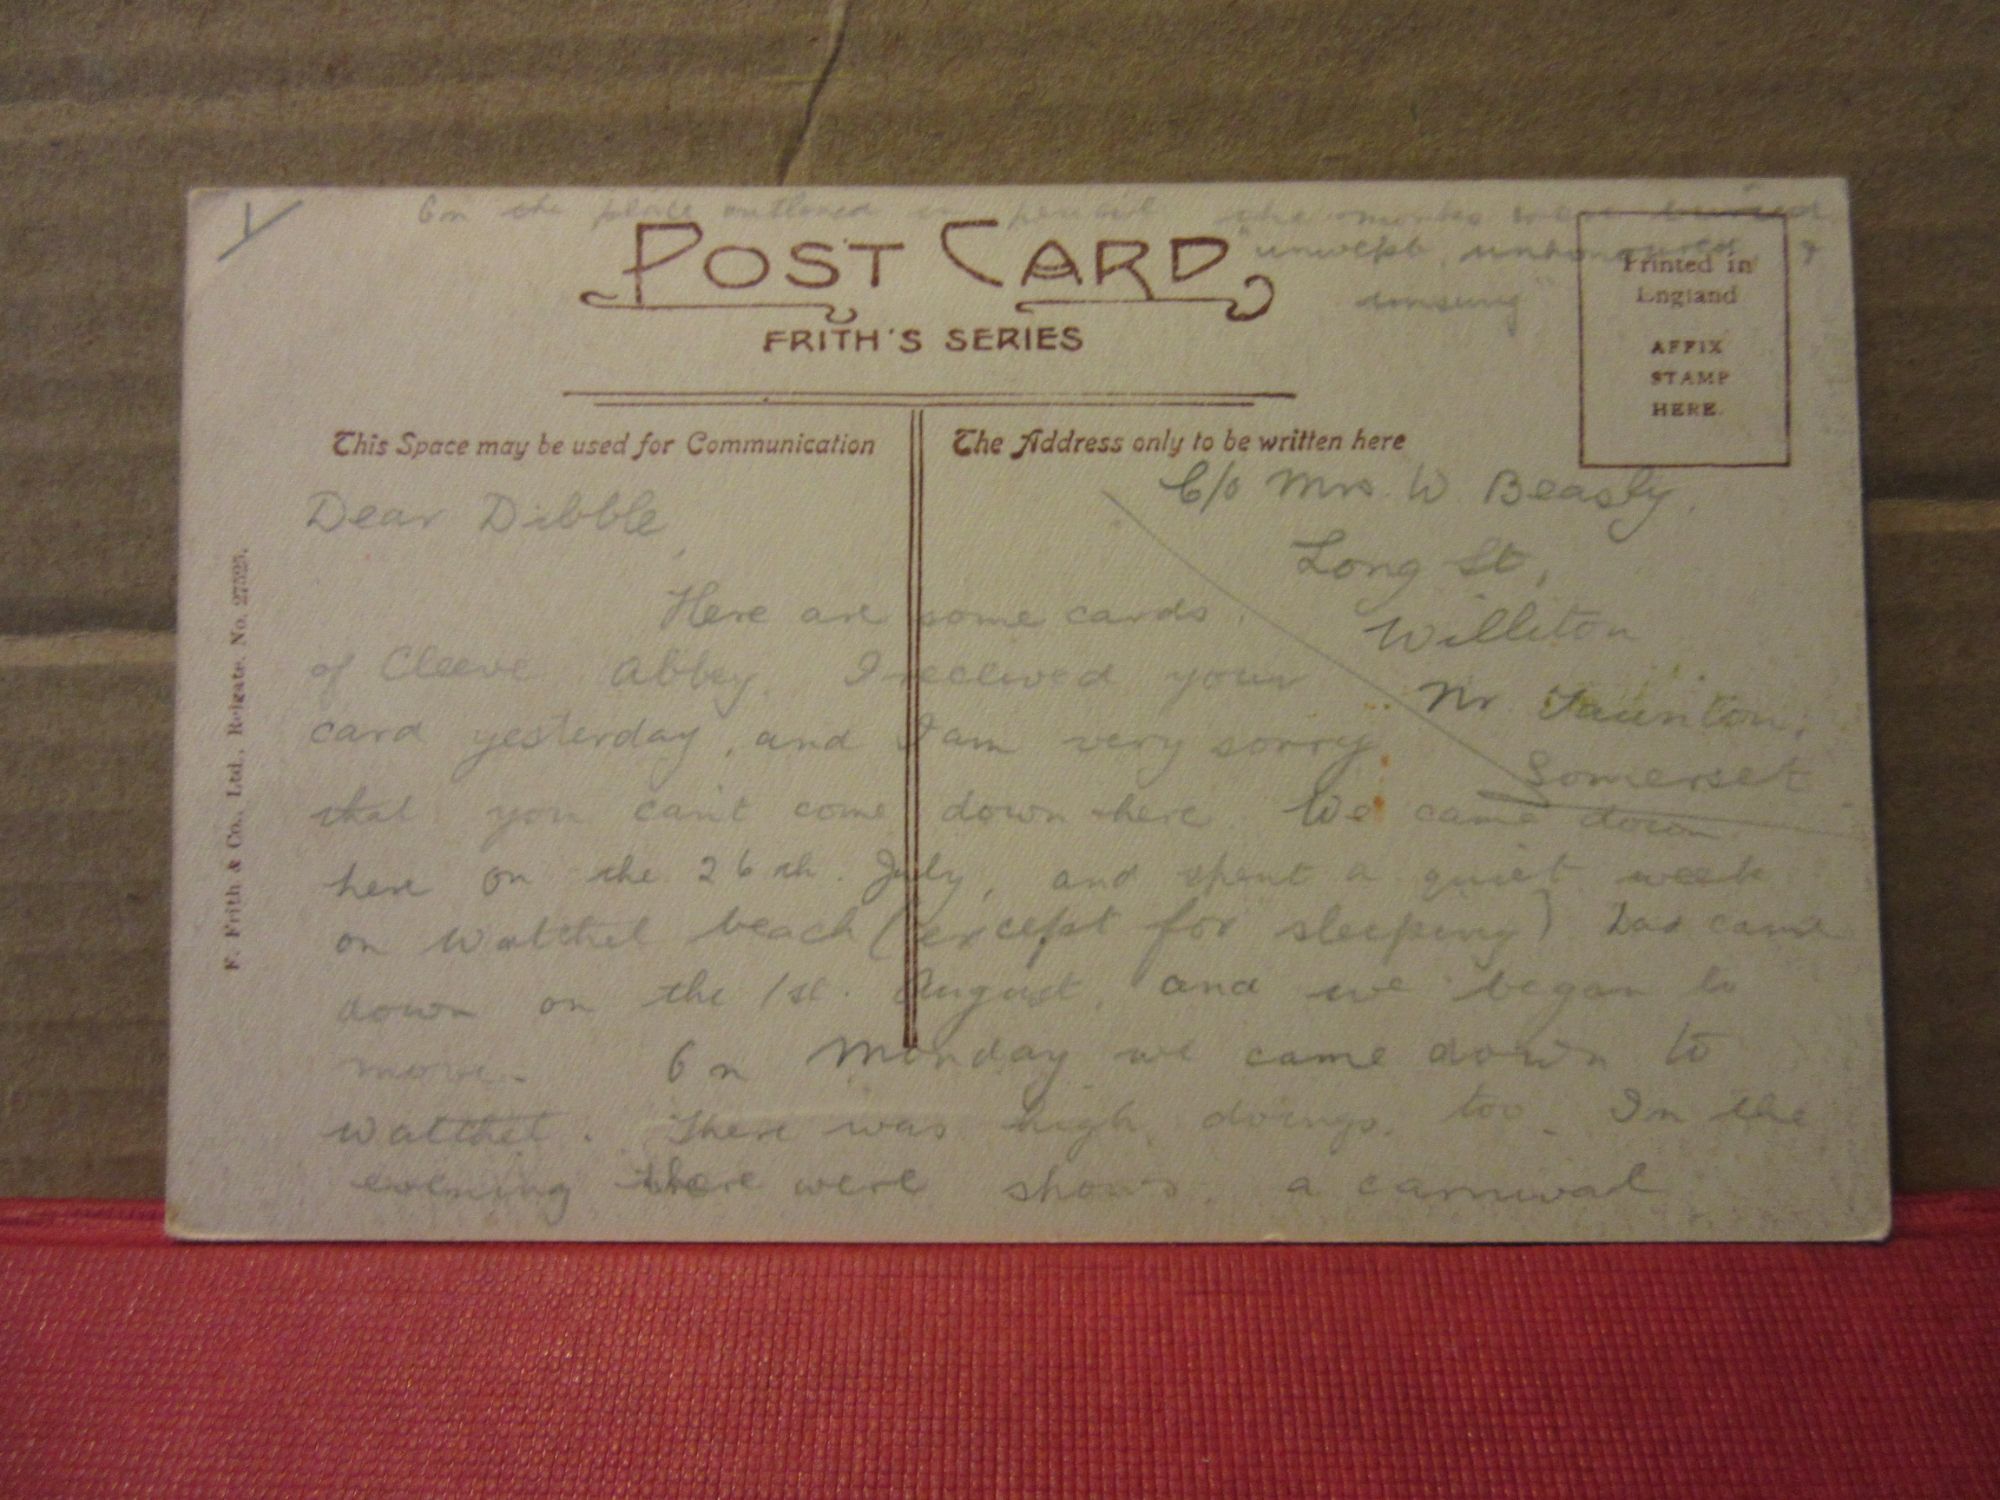 On the place outlined in pencil the monks were buried
"unwept, unhonoured &
unsung"
POST CARD
FRITH'S SERIES
Printed in
England
AFFIX
STAMP
HERE.
This Space may be used for Communication
The Address only to be written here
C/o Mrs. W Beasly,
Long St,
Williton
Nr Taunton,
Somerset
Dear Dibble,
Here are some cards
of Cleeve Abbey. I received your
card yesterday, and I am very sorry
that you can't come down here. We came down
here on the 26th. July, and spent a quiet week
on Watchet beach (except for sleeping) Dad came
down on the 1st. August, and we began to
move. On Monday we came down to
Watchet. There was high doings, too. In the
evening there were shows, a carnival
F. Frith & Co., Ltd., Reigate. No. 27525.